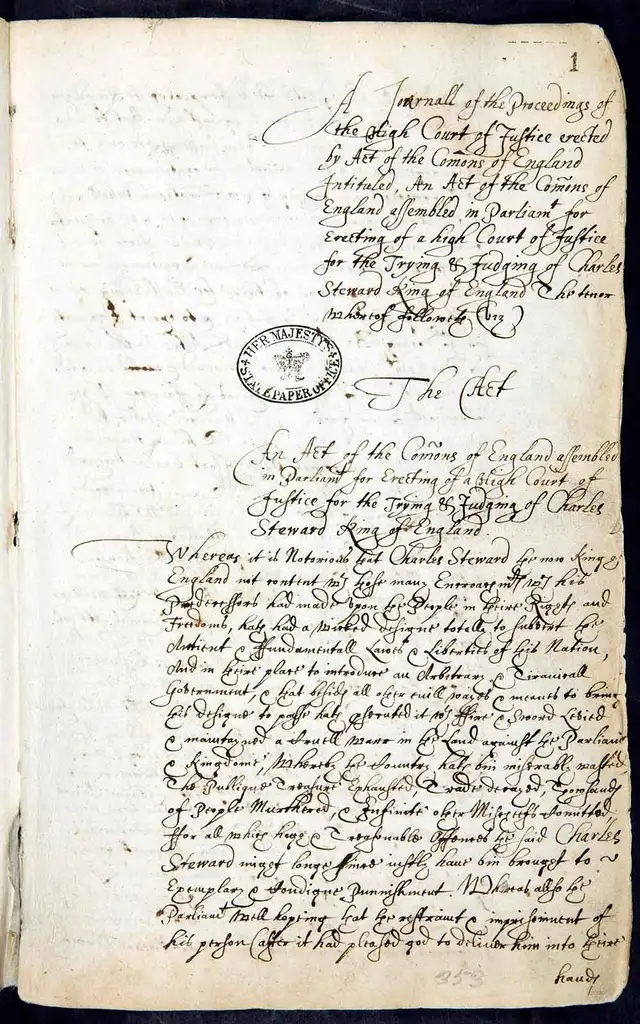 1
A Journall of the Proceedings of
the High Court of Justice erected
by Act of the Com̃ons of England
Intituled, An Act of the Com̃ons of
England assembled in Parliamt for
Erecting of a high Court of Justice
for the Trying & Judging of Charles
Steward King of England The tenor
whereof followeth (viz)
HER MAJESTY'S
STATE PAPER OFFICE
The Act
An Act of the Com̃ons of England assembled
in Parliamt for Erecting of a High Court of
Justice for the Trying & Judging of Charles
Steward King of England
Whereas it is Notorious that Charles Steward the now King of
England not content wth those many Encroachmts wch his
Predecessors had made upon the People in theire Rights and
Freedoms, hath had a Wicked designe totally to subvert the
Antient & Fundamentall Lawes & Liberties of this Nation,
And in theire place to introduce an Arbitrary & Tiranicall
Government, & that besids all other evill wayes & meanes to bring
this designe to passe hath prosecuted it wth ffire & Sword Levied
& maintayned a Cruell Warr in the Land against the Parliamt
& Kingdome, Whereby the Country hath bin miserably wasted
The Publique Treasure Exhausted, Trade decayed, Thowsands
of People Murthered, & Infinite other Mischeifs Comitted,
ffor all which high & Treasonable Offences the said Charles
Steward might longe since iustly haue bin brought to
Exemplary & Condigne Punnishment. Whereas allso the
Parliamt well hopeing that the restraint & imprisonment of
his person (after it had pleased god to deliver him into theire
353
hands